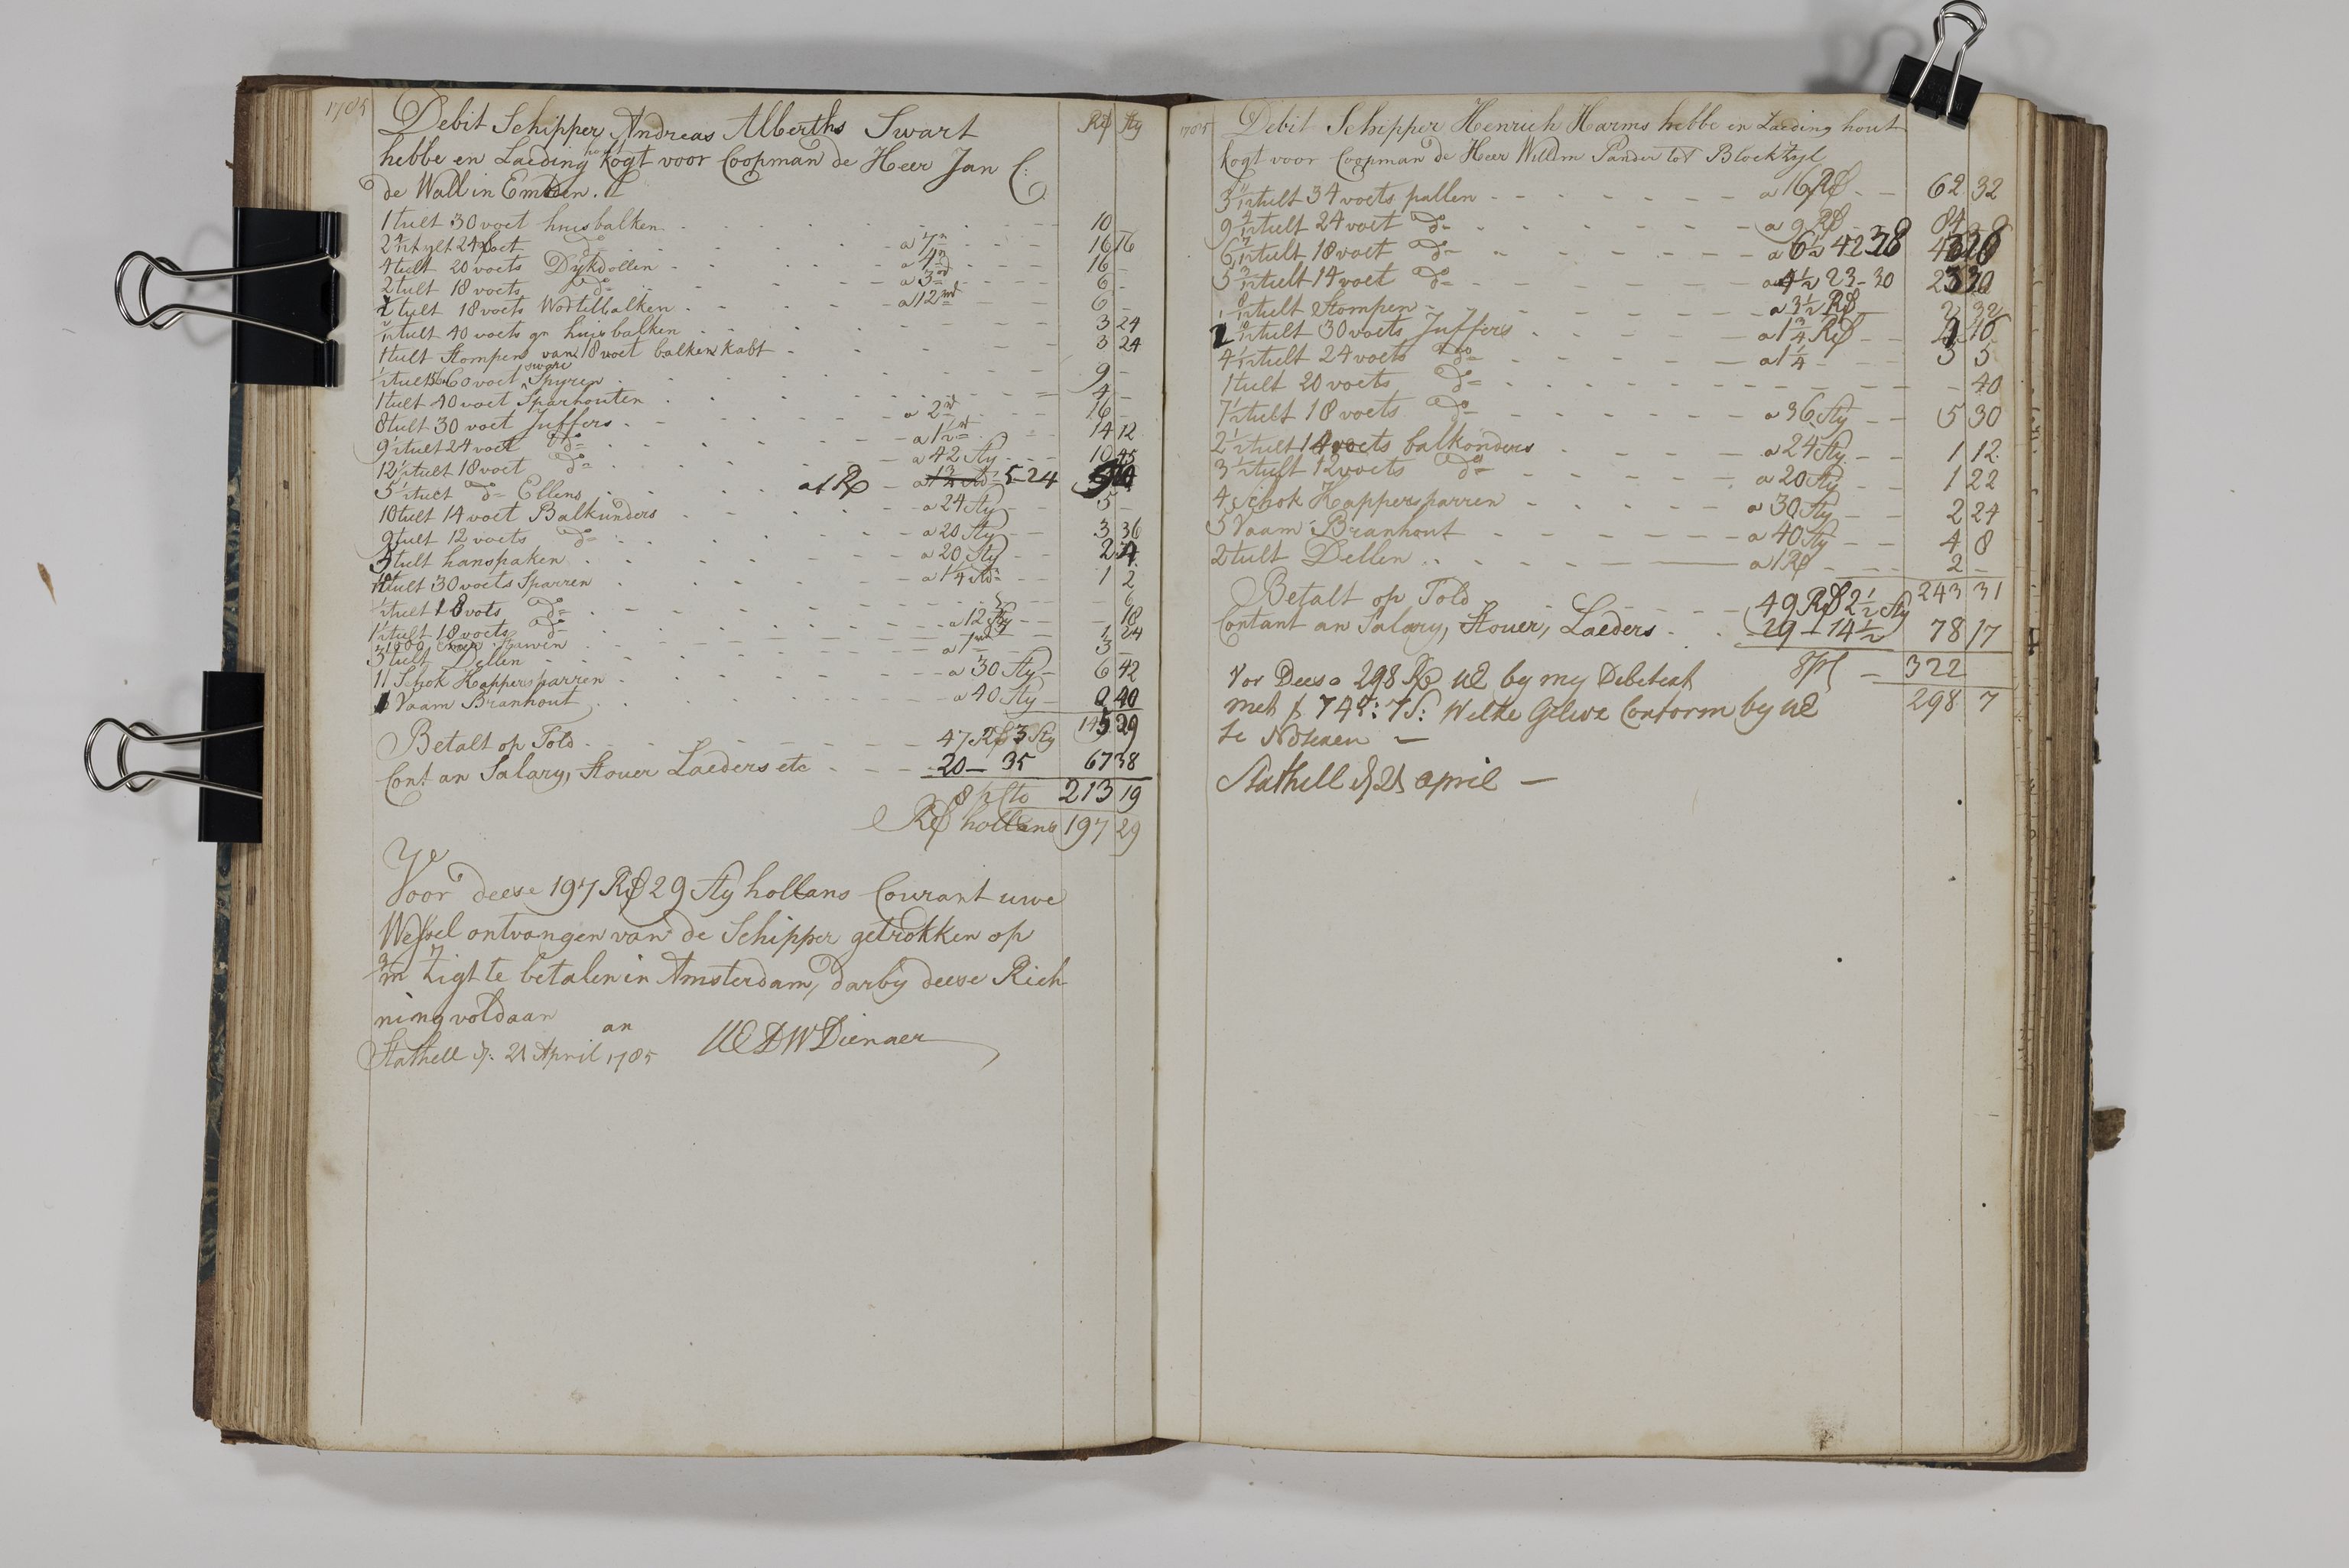 1785
Debit Schipper Andreas Alberths Swart
Rd Sty
hebbe en Laeding ho kogt voor Coopman de Heer Jan C:
de Wall in Emden.
1 tult 30 voet huisbalken 10
2 4/12 tylt 24 voet do a 7 16 16
4 tult 20 voets Dykdollen a 4 16 -
2 tult 18 voets do a 3 6 -
1/2 tult 18 voets Wortelbalken a 12 6 -
1/12 tult 40 voets gr huis balken 3 24
1 tult Stompen van 18 voet balken kabt 3 24
1/2 tult 60 voet sware Spyren 9 -
1 tult 40 voet Sparhouten 4 -
8 tult 30 voet Juffers a 2 16 -
9 1/2 tult 24 voet do a 1 1/2 14 12
12 1/2 tult 18 voet do a 42 Sty 10 45
5 1/2 tult do Ellens a 1 Rd 5-24
10 tult 14 voet Balkunders a 24 Sty 5 -
9 tult 12 voets do a 20 Sty 3 36
tult hanspaken a 20 Sty 2
tult 30 voets Sparren a 1 1/4 1 2
1/2 tult 18 vots do 6
1 1/2 tult 18 voets do a 12 Sty - 18
1000 Stawen 1 24
3 tult Dellen a 1 3 -
11 Schok Kappersparren a 30 Sty 6 42
Vaam Branhout a 40 Sty 40
145 29
Betalt op Told 47 Rd 3 Sty
Cont an Salary, Stouer Laeders etc 20 - 35 67 38
8 p Cto 213 19
Rd hollans 197 29
Voor deese 197 Rd 29 Sty hollans Courant uwe
Wessel ontvangen van de Schipper getrokken op
Zigt te betalen in Amsterdam, darby deese Rich
ning voldaan an
Stathell d: 21 April 1785 UEDWDienaer
1785
Debit Schipper Henrich Harms hebbe en Laeding hout
kogt voor Coopman de Heer Willem Pander tot Blockzyl
3 11/12 tult 34 voets pallen a 16 Rd 62 32
9 4/12 tult 24 voet do a 9 Rd 84
6 7/12 tult 18 voet do a 6 1/2 42 38
5 3/12 tult 14 voet do a 4 1/2 23-30
8/12 tult Stompen a 3 1/2 Rd 2 32
10/12 tult 30 voets Juffers a 1 3/4 Rd
4 1/12 tult 24 voets do a 1 1/4 5 5
1 tult 20 voets do - 40
7 1/2 tult 18 voets do a 36 Sty 5 30
2 1/2 tult 14 voets balkonders a 24 Sty 1 12
3 1/2 tult 12 voets do a 20 Sty 1 22
4 Schok Kappersparren a 30 Sty 2 24
5 Vaam Branhout a 40 Sty 4 8
2 tult Dellen a 1 Rd 2 -
243 31
Betalt op Told 49 Rd 2 1/2 Sty
Contant an Salary, Stouer, Laeders 29 - 14 1/2 78 17
8 p C 322
Vor Deese 298 Rd UE by my Debiteat
298 7
met f 745: 7 S: Welke Gelive Conform by UE
te Noteren
Stathell d 21 april